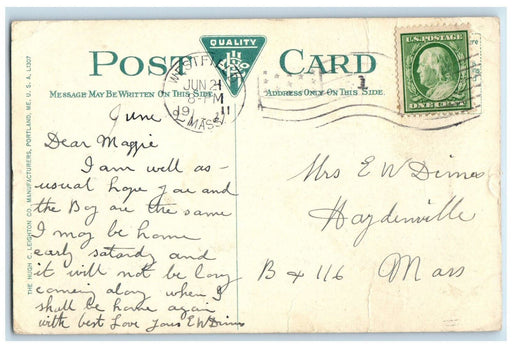 POST CARD
QUALITY
MESSAGE MAY BE WRITTEN ON THIS SIDE
ADDRESS ONLY ON THIS SIDE.
WESTFIELD
JUN 21
8-PM
1911
MASS.
1
U.S. POSTAGE
ONE CENT
THE HUGH C. LEIGHTON CO., MANUFACTURERS, PORTLAND, ME. U.S.A.
June
Dear Maggie
I am well as-
usual hope you and
the Boy are the same
I may be home
early saturdy and
it will not be long
comein along when I
shall be home again
with best Love yours E W Dimis
Mrs E W Dimis
Haydenville
B + 116 Mass